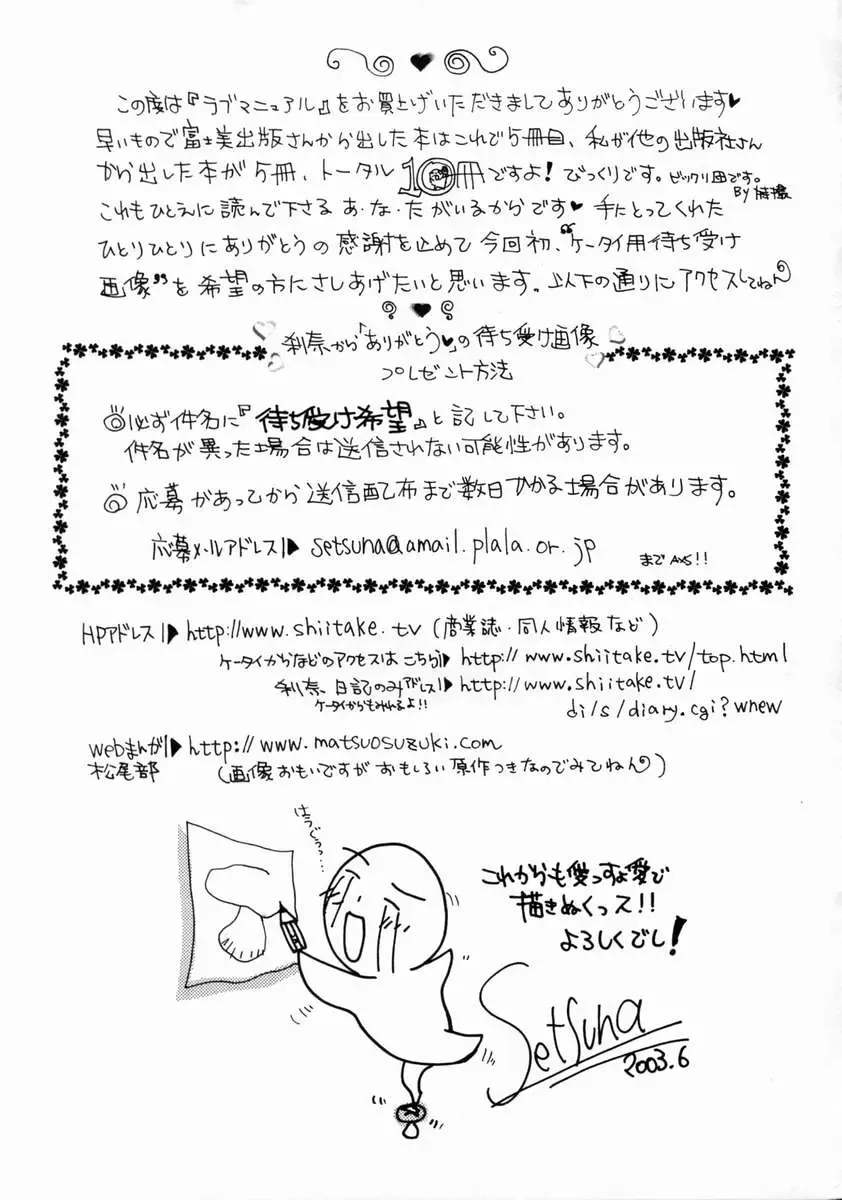 この度は『ラブマニュアル』をお買上げいただきましてありがとうございます♥
早いもので富士美出版さんから出した本はこれで5冊目、私が他の出版社さん
から出した本が5冊、トータル10冊ですよ！びっくりです。ビックリ団です。
これもひとえに読んで下さる あ・な・たがいるからです♥ 手にとってくれた
ひとりひとりにありがとうの感謝を止めて今回初、“ケータイ用待ち受け
画像”を希望の方にさしあげたいと思います。以下の通りにアクセスしてねん
利奈から「ありがとう♥」の待ち受け画像
プレゼント方法
◎必ず件名に『待ち受け希望』と記して下さい。
件名が異った場合は送信されない可能性があります。
◎応募があってから送信配布まで数日かかる場合があります。
応募メールアドレス▶ setsuna@amail.plala.or.jp
まで
HPアドレス▶ http://www.shiitake.tv (商業誌・同人情報など)
ケータイからなどのアクセスはこちら▶ http://www.shiitake.tv/top.html
利奈、日記のみアドレス▶ http://www.shiitake.tv/
ケータイからもみれるよ!!
di/s/diary.cgi?wnew
webまんが▶ http://www.matsuosuzuki.com
松尾部 (画像おもいですがおもしろい原作つきなのでみてねん)
これからも愛っすよ愛で
描きぬくっス!!
よろしくでし!
Setsuna
2003.6